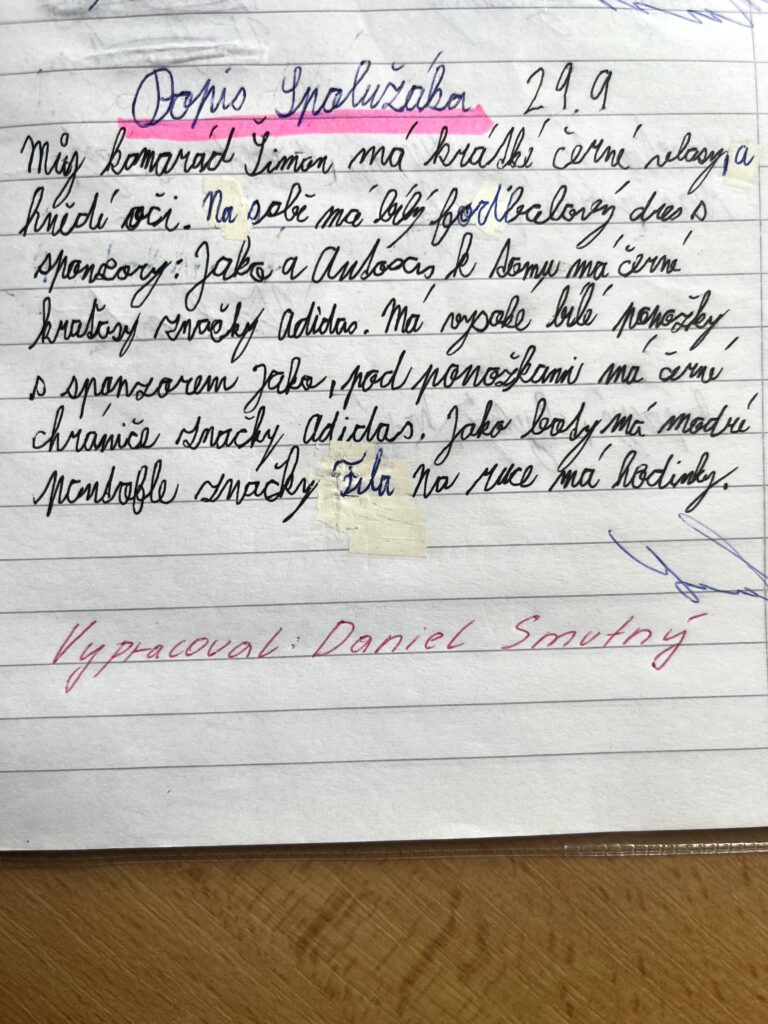 Dopis Spolužáka 29.9
Můj kamarád Šimon má krátké černé vlasy, a
hnědí oči. Na sobě má bílý fotbalový dres s
sponzory: Jako a Autosas k tomu má černé
kraťasy značky Adidas. Má vysoke bílé ponožky
s sponzorem Jako, pod ponožkami má černé
chrániče značky Adidas. Jako boty má modré
pantofle značky Fila Na ruce má hodinky.
Vypracoval: Daniel Smutný